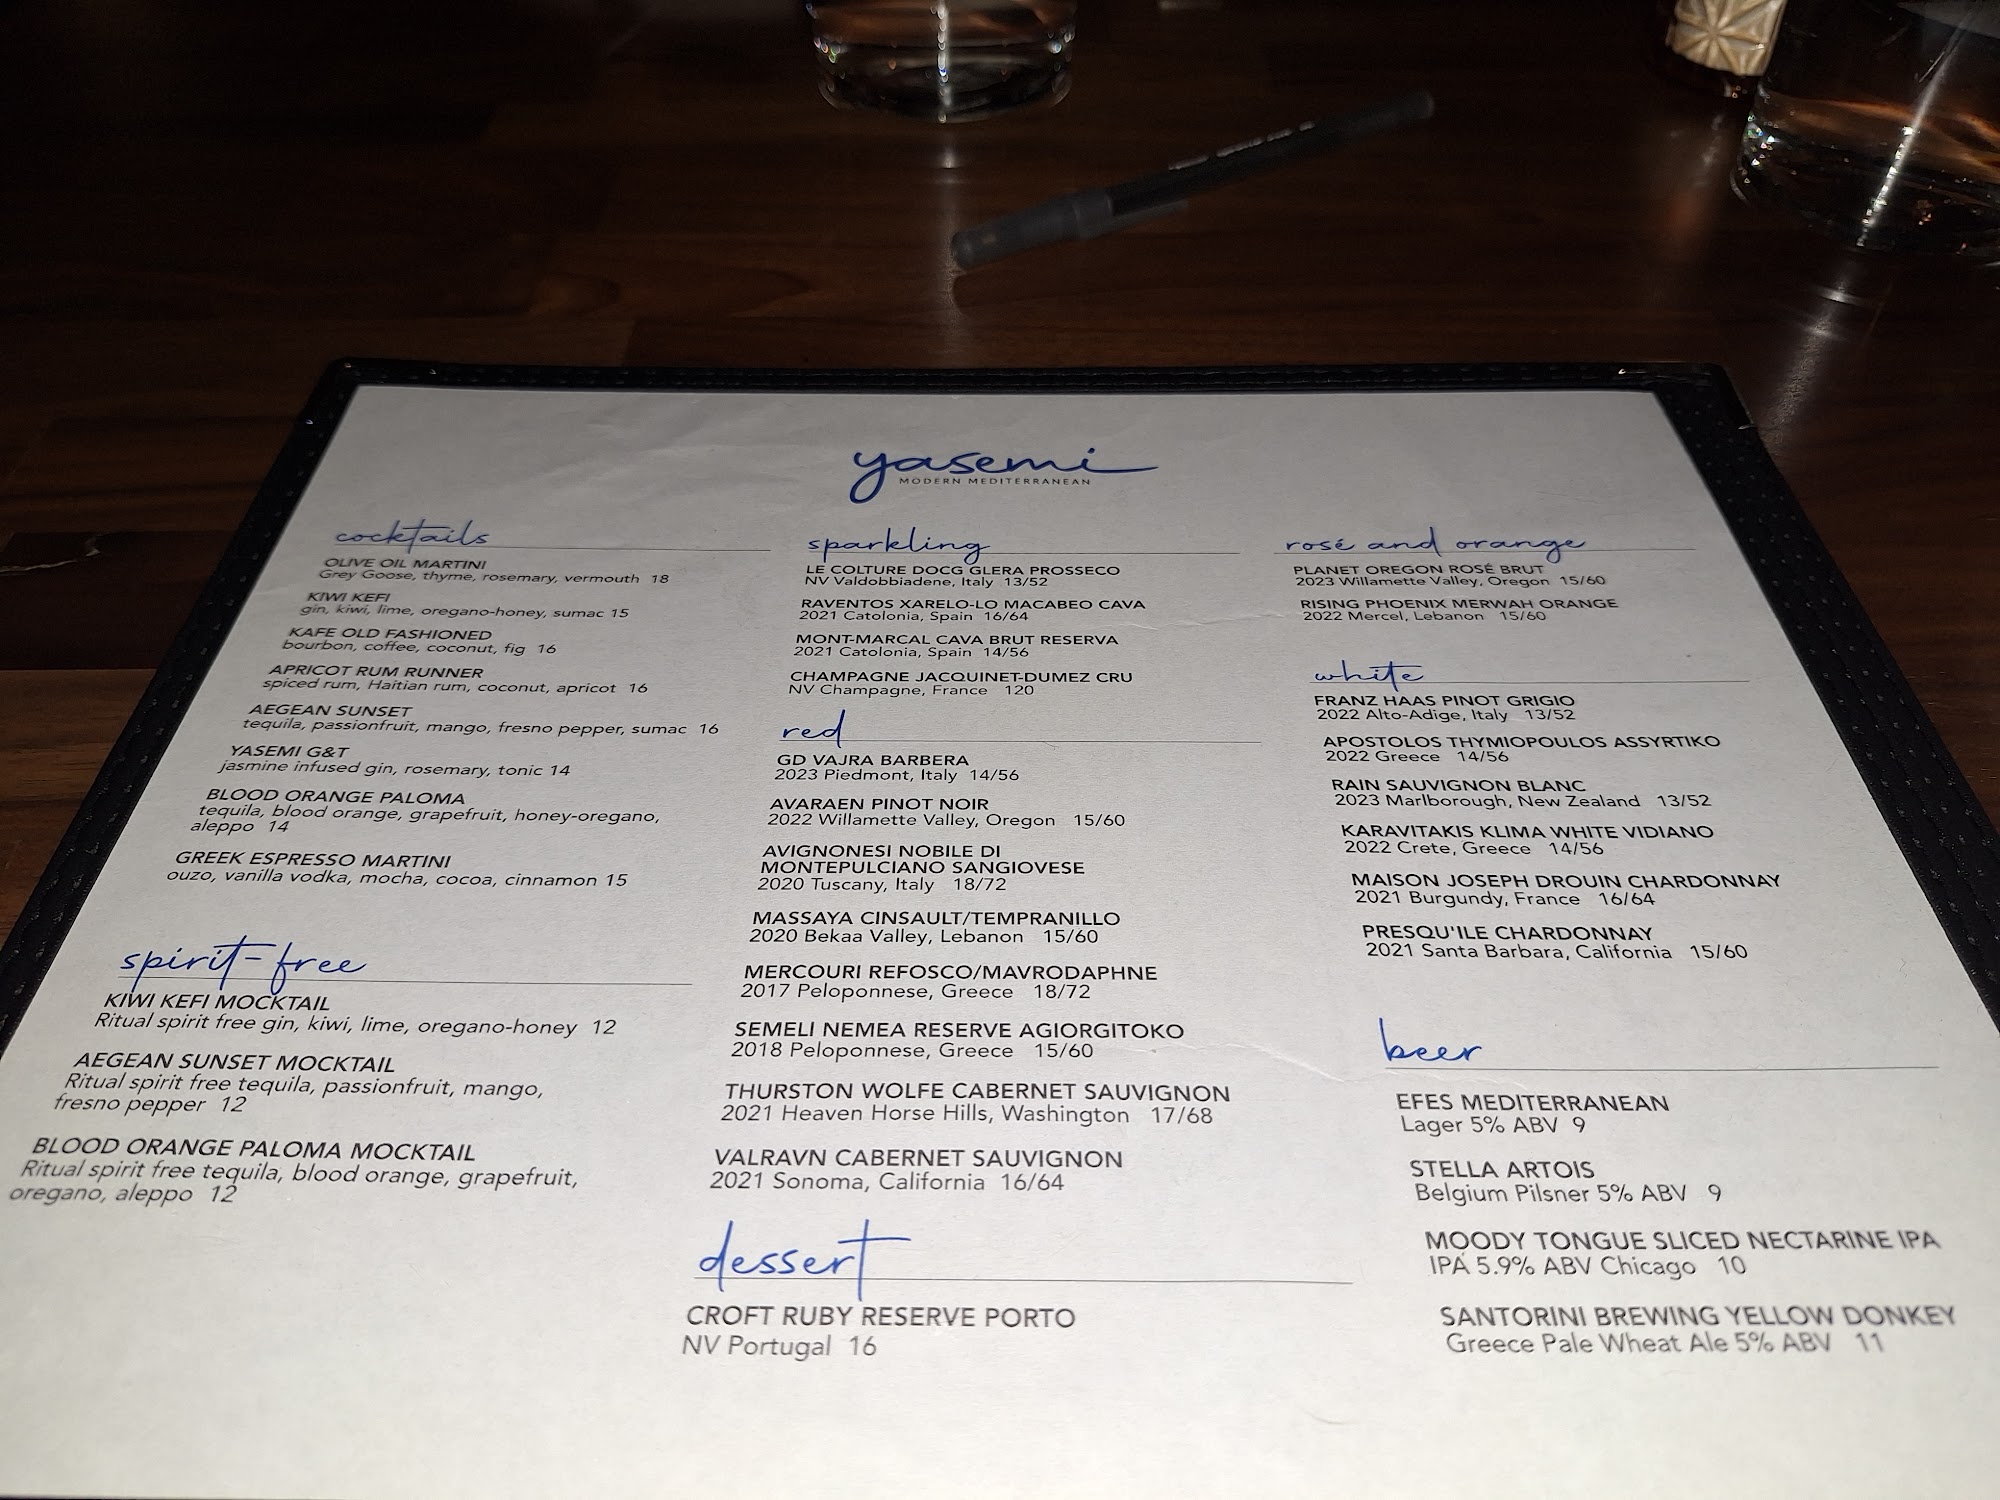 yasemi
MODERN MEDITERRANEAN
cocktails
OLIVE OIL MARTINI
Grey Goose, thyme, rosemary, vermouth 18
KIWI KEFI
gin, kiwi, lime, oregano-honey, sumac 15
KAFE OLD FASHIONED
bourbon, coffee, coconut, fig 16
APRICOT RUM RUNNER
spiced rum, Haitian rum, coconut, apricot 16
AEGEAN SUNSET
tequila, passionfruit, mango, fresno pepper, sumac 16
YASEMI G&T
jasmine infused gin, rosemary, tonic 14
BLOOD ORANGE PALOMA
tequila, blood orange, grapefruit, honey-oregano,
aleppo 14
GREEK ESPRESSO MARTINI
ouzo, vanilla vodka, mocha, cocoa, cinnamon 15
spirit-free
KIWI KEFI MOCKTAIL
Ritual spirit free gin, kiwi, lime, oregano-honey 12
AEGEAN SUNSET MOCKTAIL
Ritual spirit free tequila, passionfruit, mango,
fresno pepper 12
BLOOD ORANGE PALOMA MOCKTAIL
Ritual spirit free tequila, blood orange, grapefruit,
oregano, aleppo 12
sparkling
LE COLTURE DOCG GLERA PROSSECO
NV Valdobbiadene, Italy 13/52
RAVENTOS XARELO-LO MACABEO CAVA
2021 Catolonia, Spain 16/64
MONT-MARCAL CAVA BRUT RESERVA
2021 Catolonia, Spain 14/56
CHAMPAGNE JACQUINET-DUMEZ CRU
NV Champagne, France 120
red
GD VAJRA BARBERA
2023 Piedmont, Italy 14/56
AVARAEN PINOT NOIR
2022 Willamette Valley, Oregon 15/60
AVIGNONESI NOBILE DI
MONTEPULCIANO SANGIOVESE
2020 Tuscany, Italy 18/72
MASSAYA CINSAULT/TEMPRANILLO
2020 Bekaa Valley, Lebanon 15/60
MERCOURI REFOSCO/MAVRODAPHNE
2017 Peloponnese, Greece 18/72
SEMELI NEMEA RESERVE AGIORGITOKO
2018 Peloponnese, Greece 15/60
THURSTON WOLFE CABERNET SAUVIGNON
2021 Heaven Horse Hills, Washington 17/68
VALRAVN CABERNET SAUVIGNON
2021 Sonoma, California 16/64
dessert
CROFT RUBY RESERVE PORTO
NV Portugal 16
rosé and orange
PLANET OREGON ROSÉ BRUT
2023 Willamette Valley, Oregon 15/60
RISING PHOENIX MERWAH ORANGE
2022 Mercel, Lebanon 15/60
white
FRANZ HAAS PINOT GRIGIO
2022 Alto-Adige, Italy 13/52
APOSTOLOS THYMIOPOULOS ASSYRTIKO
2022 Greece 14/56
RAIN SAUVIGNON BLANC
2023 Marlborough, New Zealand 13/52
KARAVITAKIS KLIMA WHITE VIDIANO
2022 Crete, Greece 14/56
MAISON JOSEPH DROUIN CHARDONNAY
2021 Burgundy, France 16/64
PRESQU'ILE CHARDONNAY
2021 Santa Barbara, California 15/60
beer
EFES MEDITERRANEAN
Lager 5% ABV 9
STELLA ARTOIS
Belgium Pilsner 5% ABV 9
MOODY TONGUE SLICED NECTARINE IPA
IPA 5.9% ABV Chicago 10
SANTORINI BREWING YELLOW DONKEY
Greece Pale Wheat Ale 5% ABV 11